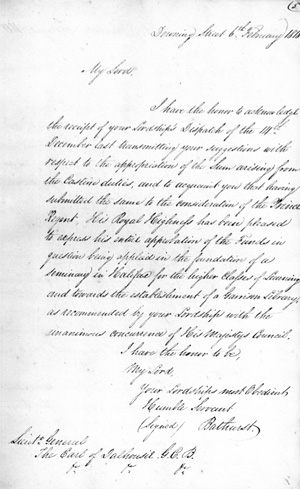 (5
Downing Street 6th February 181
My Lord,
I have the honor to acknowledge
the receipt of your Lordship's Dispatch of the 14th
December last transmitting your suggestions with
respect to the appropriation of the Sum arising from
the Castine duties, and to acquaint you that having
submitted the same to the consideration of the Prince
Regent, His Royal Highness has been pleased
to express his entire approbation of the Funds in
question being applied in the foundation of a
Seminary in Halifax for the higher Classes of Learning
and towards the establishment of a Garrison Library,
as recommended by your Lordship with the
unanimous concurrence of His Majesty's Council.
I have the honor to be,
My Lord,
Your Lordships most Obedient
Humble Servant
(Signed) Bathurst
Lieut. General
The Earl of Dalhousie G.C.B.